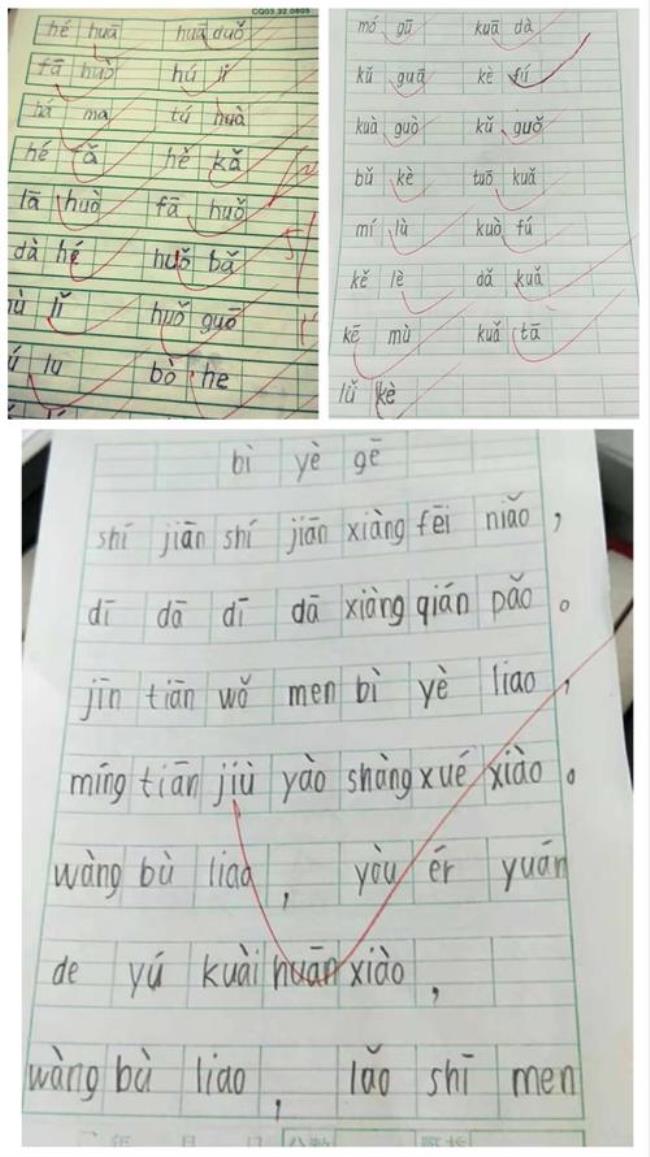 CQ03.32.0805
hé huā huā duǒ
fā huò hú li
há ma tú huà
hé hě kǎ
lā huò fā huǒ
dà hé huǒ bǎ
lǐ huǒ guō
lu bò he
mó gū kuā dà
kǔ guā kè fú
kuà guò kǔ guǒ
bǔ kè tuō kuǎ
mí lù kuò fú
kě lè dǎ kuǎ
kē mù kuǎ tā
lǚ kè
bì yè gē
shí jiān shí jiān xiàng fēi niǎo ，
dī dā dī dā xiàng qián pǎo 。
jīn tiān wǒ men bì yè liao ，
míng tiān jiù yào shàng xué xiào 。
wàng bù liao ， yòu ér yuán
de yú kuài huān xiào ，
wàng bù liao ， lǎo shī men